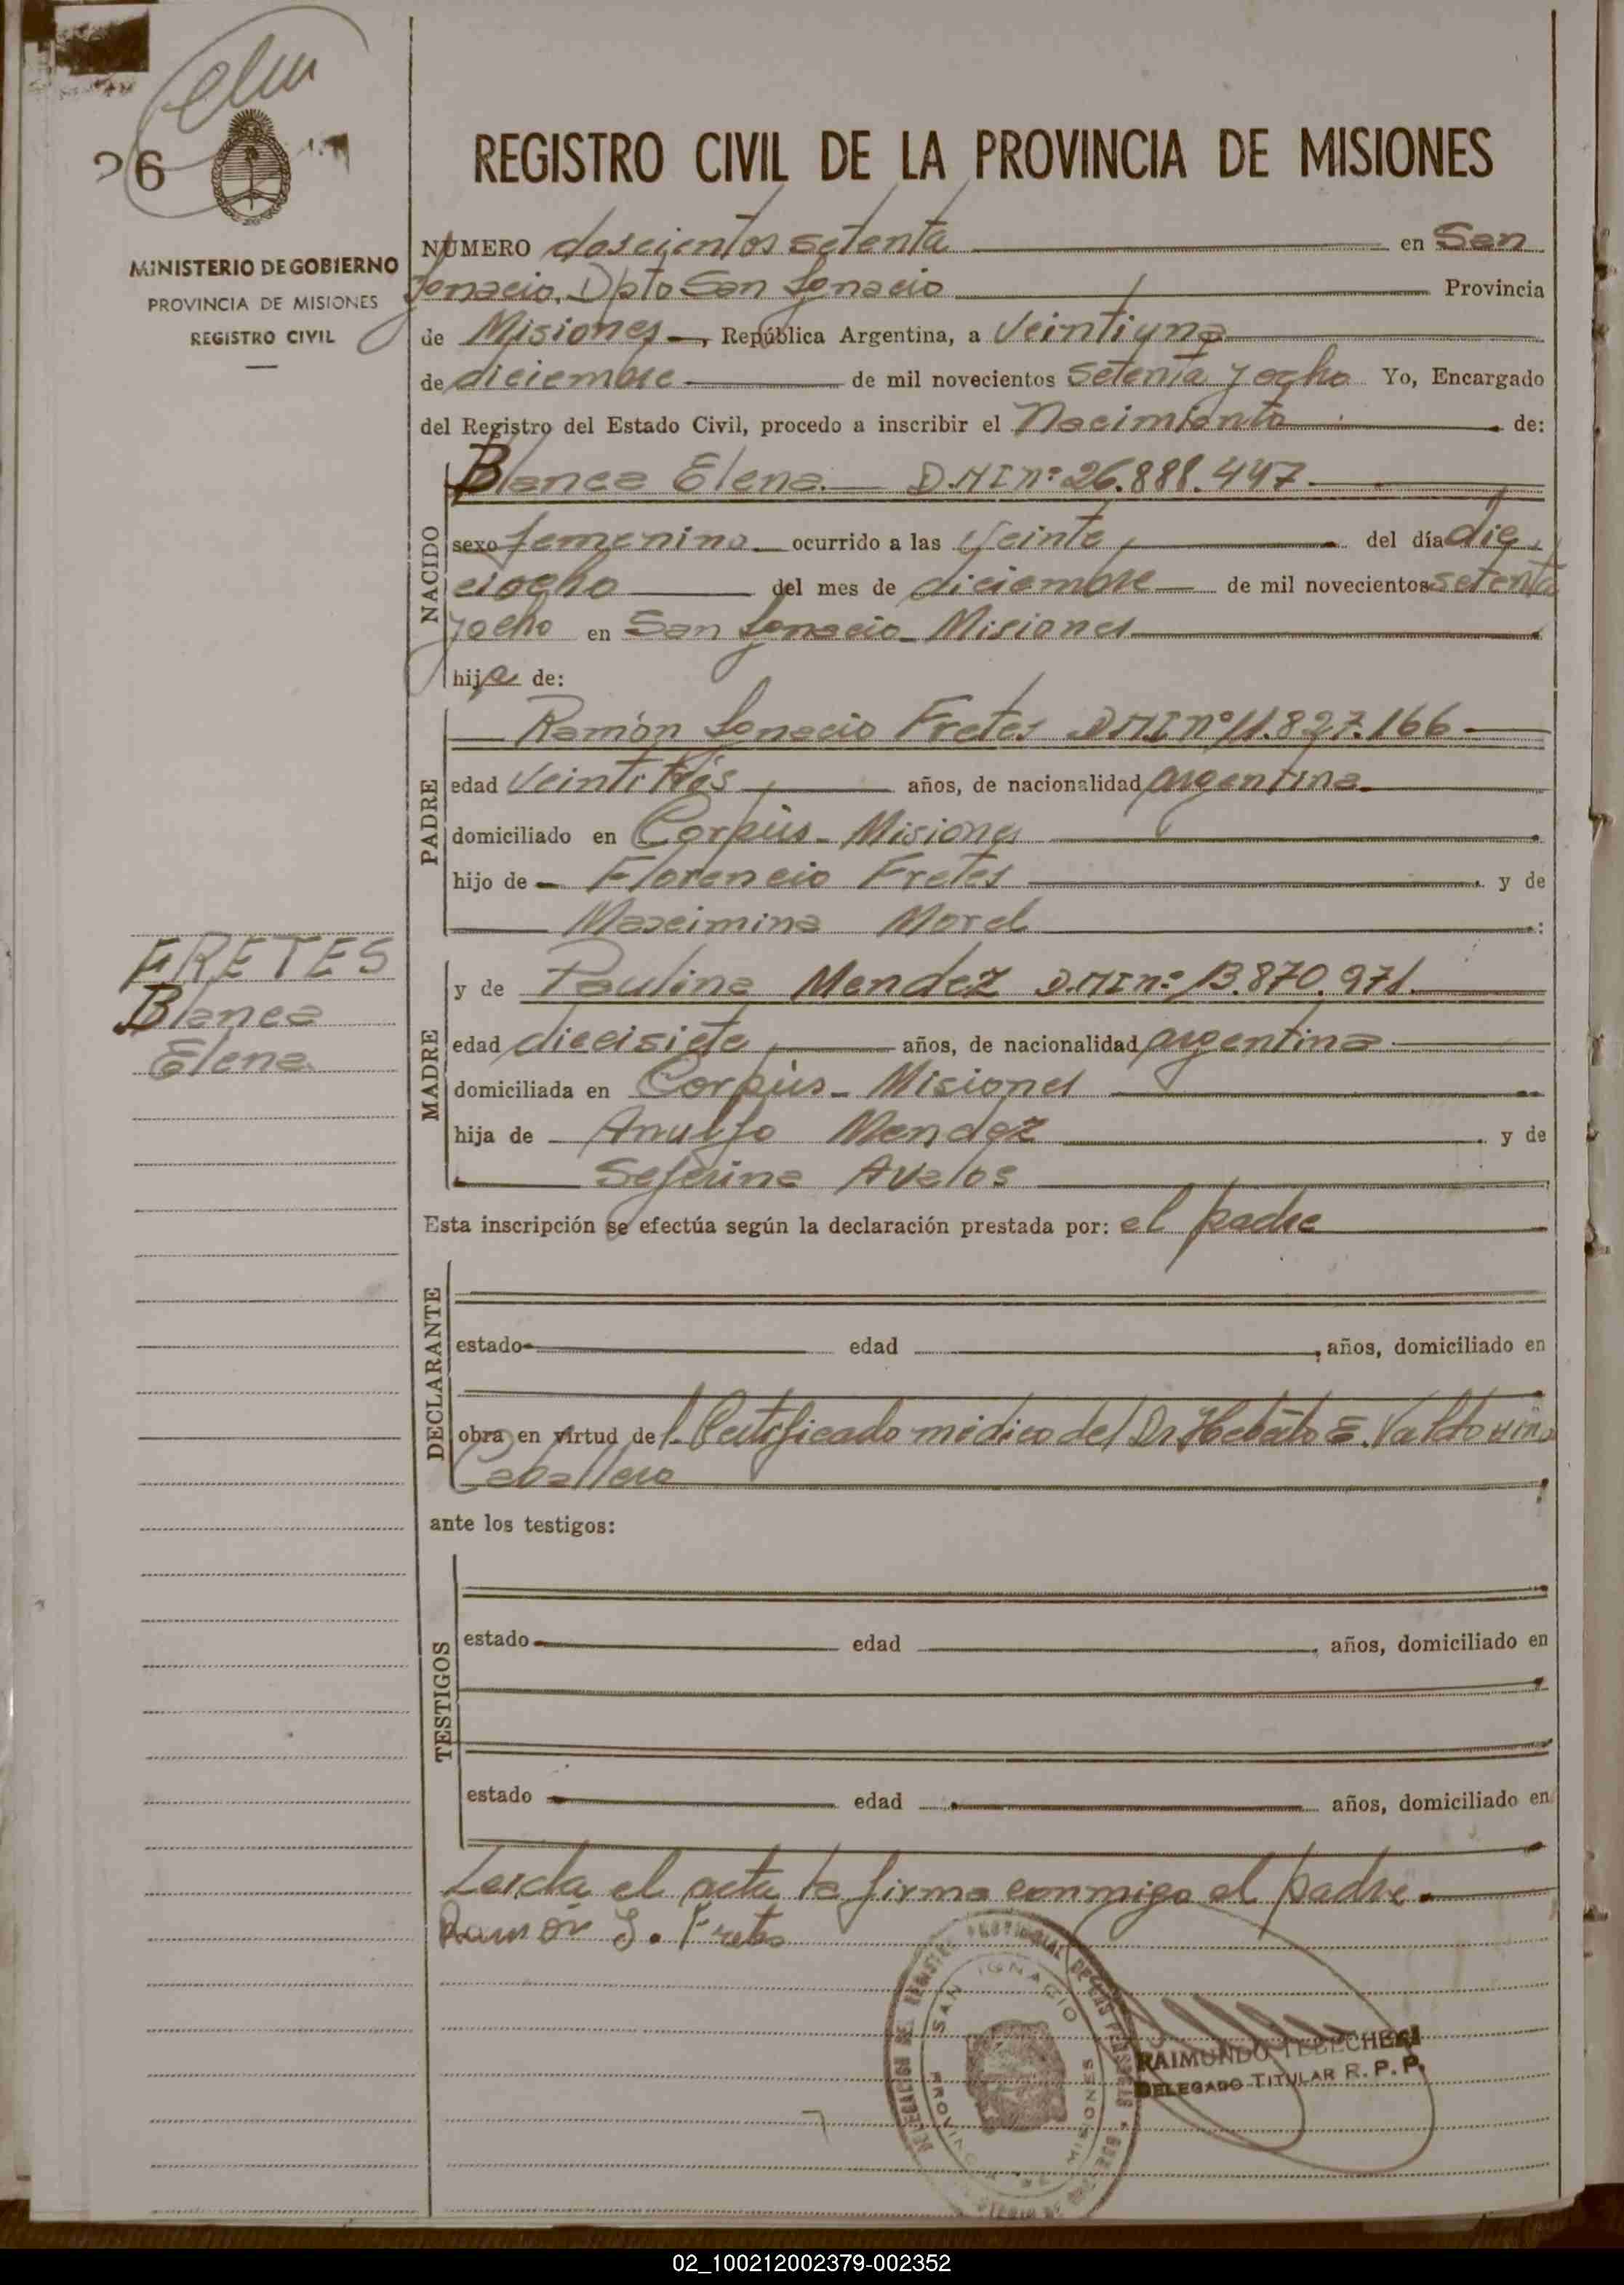 26
MINISTERIO DE GOBIERNO
PROVINCIA DE MISIONES
REGISTRO CIVIL
FRETES
Blanca
Elena
REGISTRO CIVIL DE LA PROVINCIA DE MISIONES
NÚMERO doscientos setenta en San
Ignacio, Dpto San Ignacio Provincia
de Misiones, República Argentina, a veintiuno
de diciembre de mil novecientos setenta y ocho Yo, Encargado
del Registro del Estado Civil, procedo a inscribir el Nacimiento de:
Blanca Elena. D.N.I nº 26.888.447.
NACIDO
sexo femenino ocurrido a las veinte, del día die
ciocho del mes de diciembre de mil novecientos setenta
y ocho en San Ignacio - Misiones
hija de:
PADRE
Ramón Ignacio Fretes D.N.I nº 11.827.166
edad veintitrés, años, de nacionalidad argentina.
domiciliado en Corpùs - Misiones
hijo de Florencio Fretes y de
Maximina Morel :
MADRE
y de Paulina Mendez D.N.I nº 13.870.971.
edad diecisiete, años, de nacionalidad argentina
domiciliada en Corpùs - Misiones
hija de Arnulfo Mendez y de
Seferina Avalos
Esta inscripción se efectúa según la declaración prestada por: el padre
DECLARANTE
estado edad , años, domiciliado en
obra en virtud del Certificado médico del Dr. E. Valdovino
Caballero
ante los testigos:
TESTIGOS
estado edad , años, domiciliado en
estado edad años, domiciliado en
Leída el acta la firma conmigo el padre.
Ramón I. Fretes
SAN IGNACIO
PROVINCIA DE MISIONES
RAIMUNDO
DELEGADO TITULAR R. P. P.
02_100212002379-002352